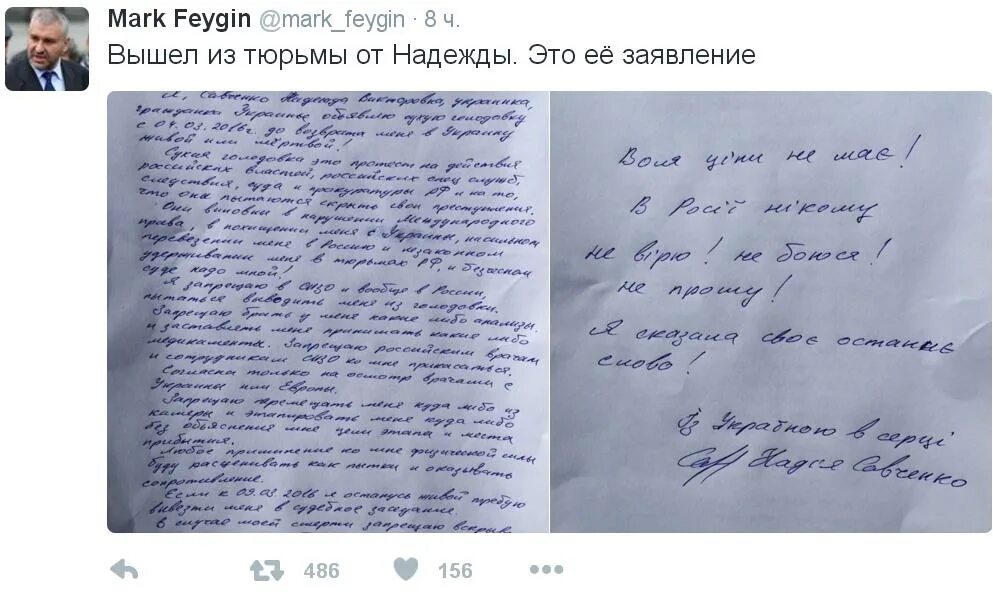 Mark Feygin @mark_feygin · 8 ч.
Вышел из тюрьмы от Надежды. Это её заявление
Я, Савченко Надежда Викторовна, украинка,
гражданка Украины объявляю сухую голодовку
с 04.03.2016г. до возврата меня в Украину
живой или мёртвой!
Сухая голодовка это протест на действия
российских властей, российских спец служб,
следствия, суда и прокуратуры РФ и на то,
что они пытаются скрыть свои преступления.
Они виновны в нарушении Международного
права, в похищении меня с Украины, насильном
перевезении меня в Россию и незаконном
удерживании меня в тюрьмах РФ, и безчесном
суде надо мной!
Я запрещаю в СИЗО и вообще в России,
пытаться выводить меня из голодовки.
Запрещаю брать у меня какие либо анализы
и заставлять меня принимать какие либо
медикаменты. Запрещаю российским врачам
и сотрудникам СИЗО ко мне прикасаться.
Согласна только на осмотр врачами с
Украины или Европы.
Запрещаю перемещать меня куда либо из
камеры и этапировать меня куда либо
без объяснения мне цели этапа и места
прибытия.
Любое применение ко мне физической силы
буду расценивать как пытки и оказывать
сопротивление.
Если к 09.03.2016 я останусь живой требую
вывезти меня в судебное заседание.
В случае моей смерти запрещаю
Воля ціни не має!
В Росії нікому
не вірю! не боюся!
не прошу!
Я сказала своє останнє
слово!
Із Україною в серці
Надія Савченко
486 156